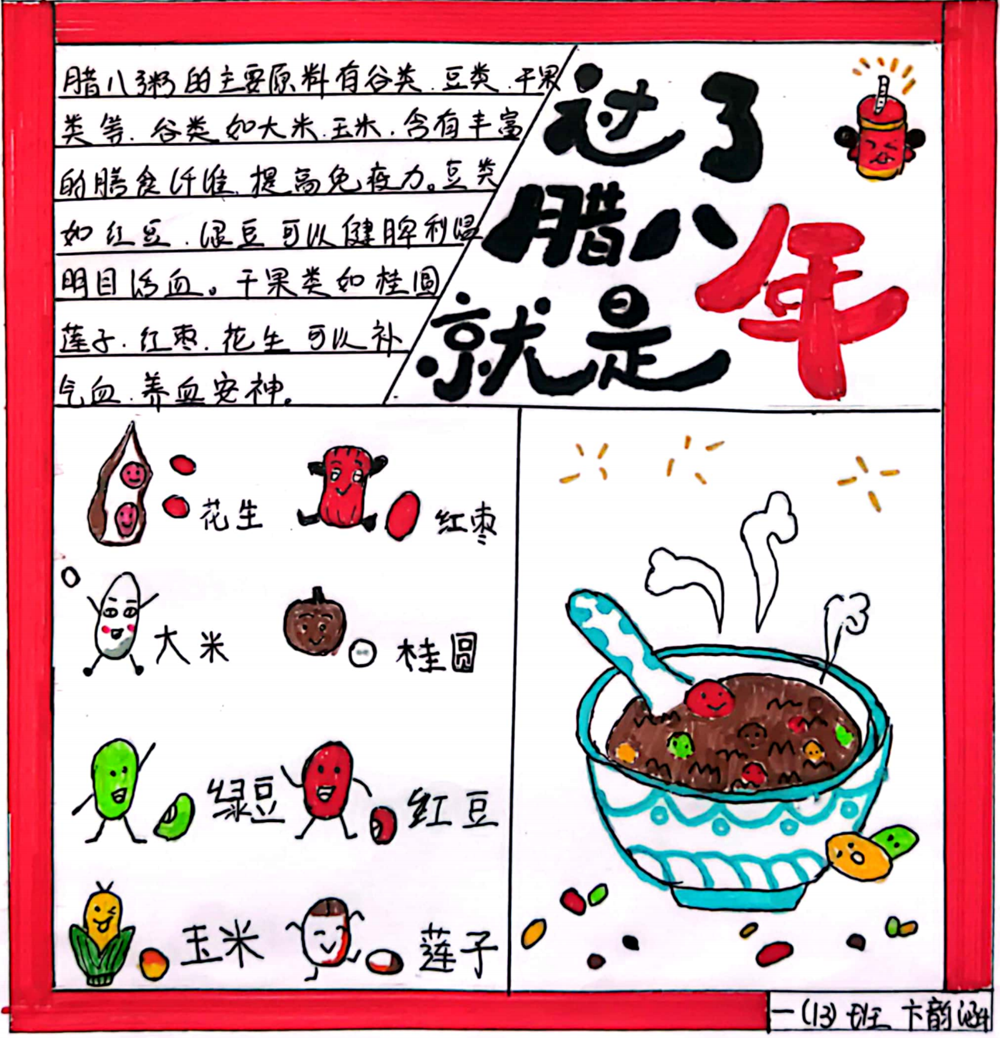 腊八粥的主要原料有谷类、豆类、干果
类等、谷类如大米、玉米、含有丰富
的膳食纤维、提高免疫力。豆类
如红豆、绿豆可以健脾利湿
明目活血。干果类如桂圆
莲子、红枣、花生可以补
气血、养血安神。
过了
腊八
就是年
花生
红枣
大米
桂圆
绿豆
红豆
玉米
莲子
一(13)班 卞韵涵